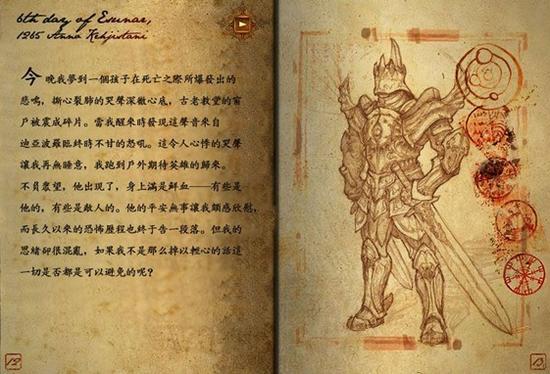 6th day of Esunar,
1265 Anno Kehjistani
今晚我夢到一個孩子在死亡之際所爆發出的
悲鳴,撕心裂肺的哭聲深徹心底,古老教堂的窗
戶被震成碎片。當我醒來時發現這聲音來自
迪亞波羅臨終時不甘的怒吼。這令人心悸的哭聲
讓我再無睡意,我跑到戶外期待英雄的歸來。
不負衆望,他出現了,身上滿是鮮血——有些是
他的,有些是敵人的。他的平安無事讓我頗感欣慰,
而長久以來的恐怖歷程也終于告一段落。但我的
思緒卻很混亂,如果我不是那么掉以輕心的話這
一切是否都是可以避免的呢?
12
13